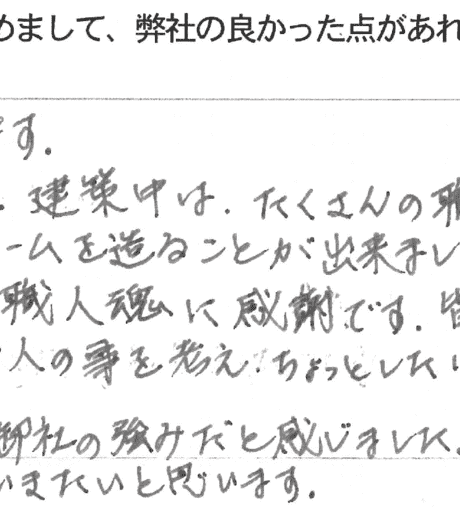 めまして、弊社の良かった点があれ
です。
。建築中は、たくさんの職
ームを造ることが出来まし
職人魂に感謝です。皆
人の事を考え、ちょっとした
御社の強みだと感じました。
いきたいと思います。